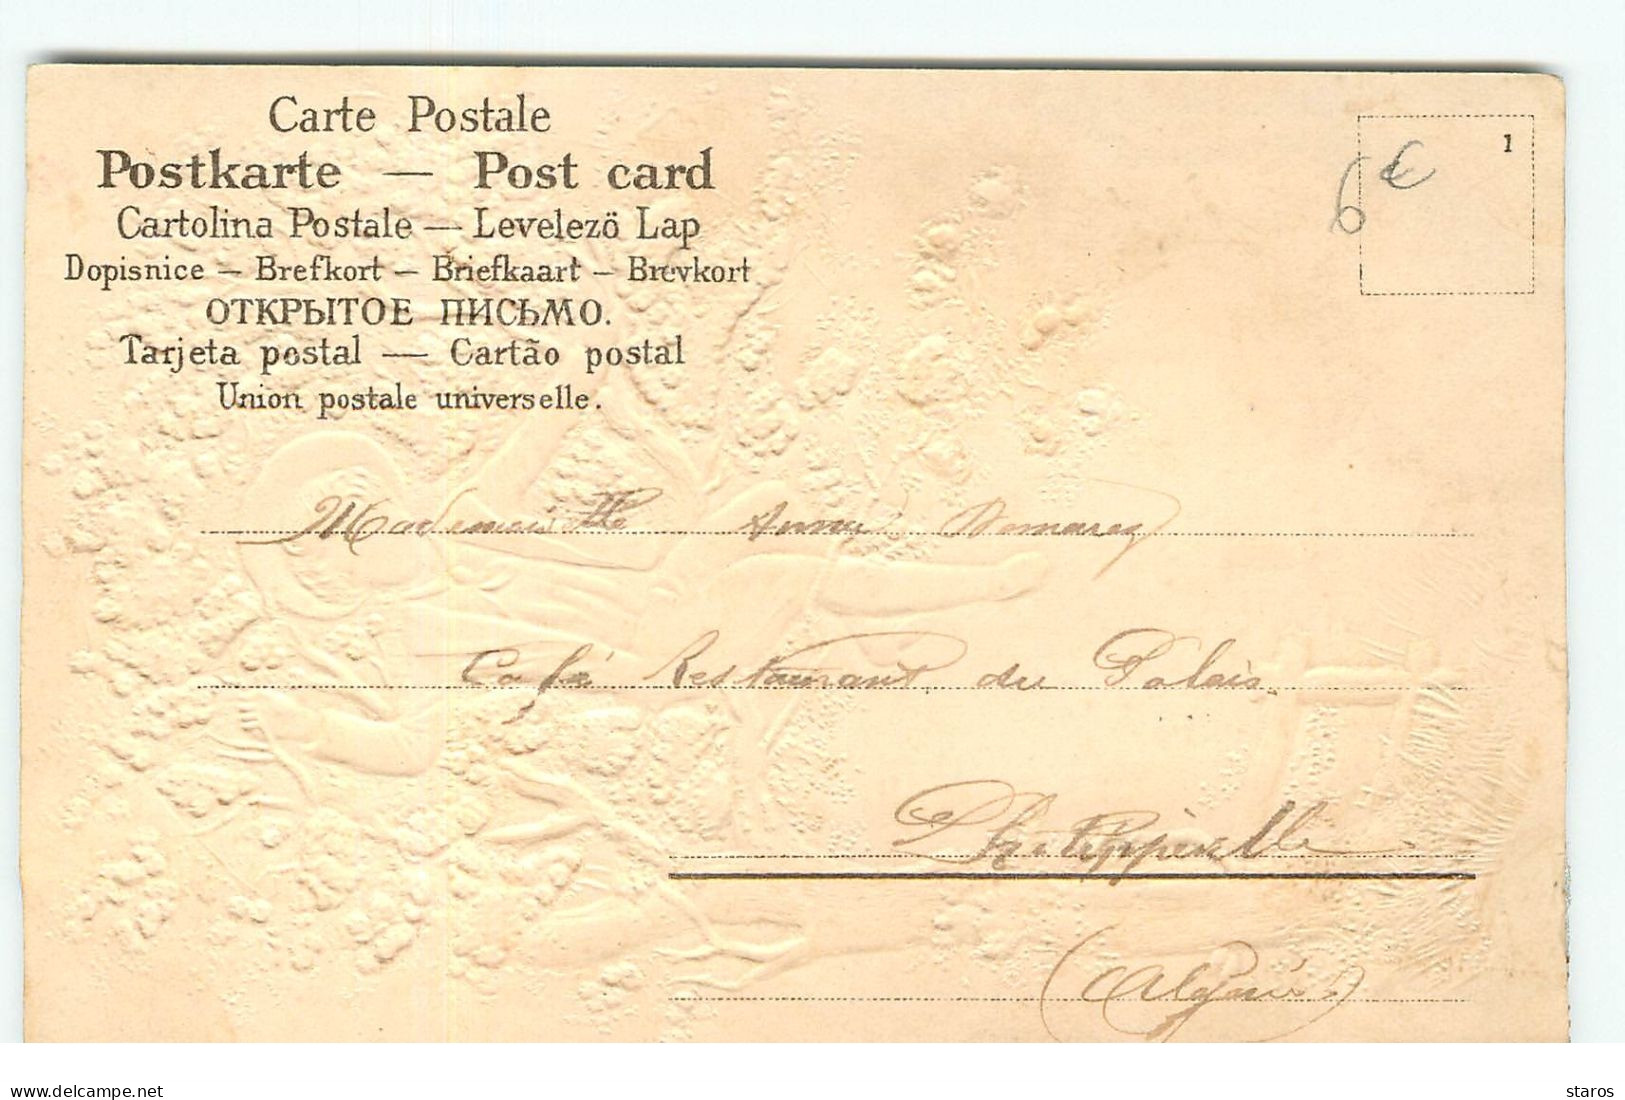 Carte Postale
Postkarte — Post card
Cartolina Postale — Levelezö Lap
Dopisnice — Brefkort — Briefkaart — Brevkort
ОТКРЫТОЕ ПИСЬМО.
Tarjeta postal — Cartão postal
Union postale universelle.
1
6 €
Mademoiselle Demarez
Café Restaurant du Palais
Philippeville
(Algérie)
delcampe.net
staros